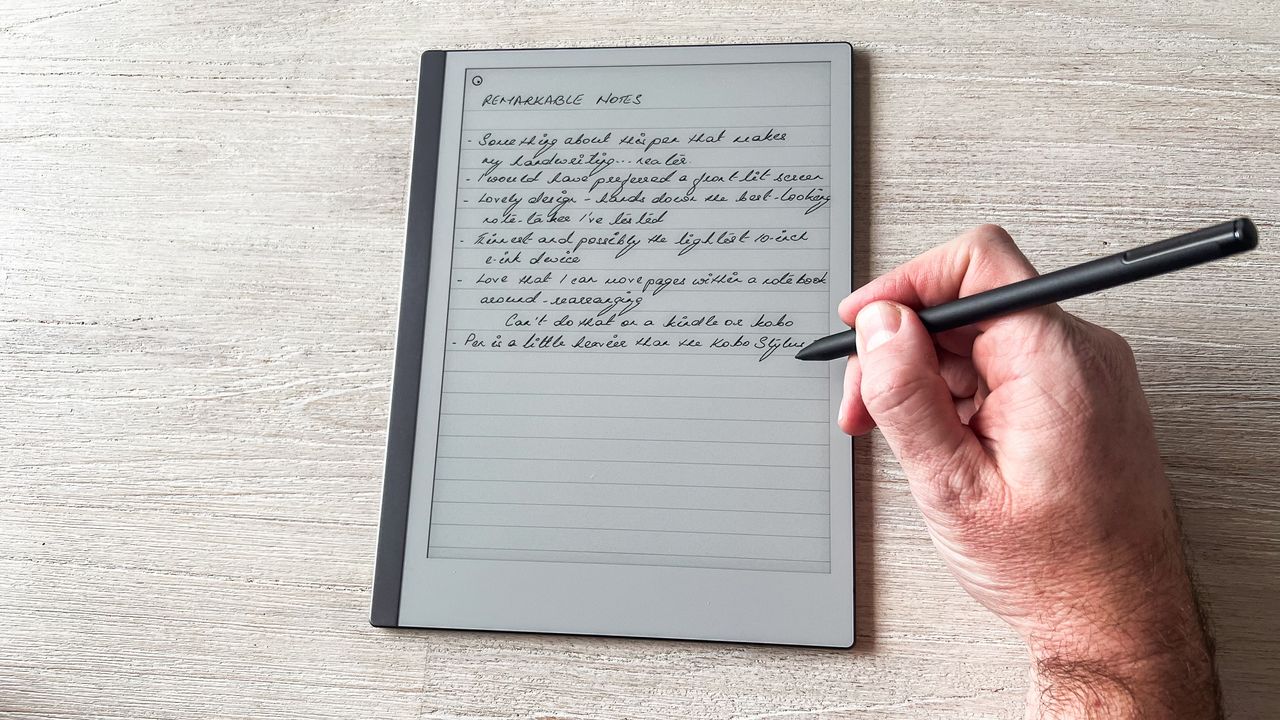 REMARKABLE NOTES
- Something about this pen that makes
my handwriting... neater.
- I would have preferred a front lit screen
- Lovely design - hands down the best-looking
note-taker I've tested
- Thinnest and possibly the lightest 10-inch
e-ink device
- Love that I can move pages within a notebook
around - rearranging
Can't do that on a kindle or kobo
- Pen is a little heavier than the Kobo Stylus